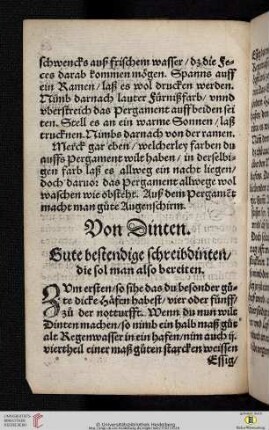 schwencks auß frischem wasser / dz die fe-
ces darab kommen mögen. Spanns auff
ein Ramen / laß es wol drucken werden.
Nimb darnach lauter Fürnißfarb / vnnd
vberstreich das Pergament auff beiden sei
ten. Stell es an ein warme Sonnen / laß
trucknen. Nimbs darnach von der ramen.
Merck gar eben / welcherley farben du
auffs Pergament wilt haben / in derselbi-
gen farb laß es allweg ein nacht liegen /
doch daruor das Pergament allwege wol
waschen wie obsteht. Auß dem Pergamēt
macht man güte Augenschirm.
Von Dinten.
Gute bestendige schreibdinten /
die sol man also bereiten.
Zum ersten / so sihe das du besonder gü-
te dicke Häfen habest / vier oder fünff /
zü der notturfft. Wenn du nun wilt
Dinten machen / so nimb ein halb maß güt
alt Regenwasser in ein hafen / nim auch ij.
viertheil einer maß güten starcken weissen
Essig /
© Universitätsbibliothek Heidelberg